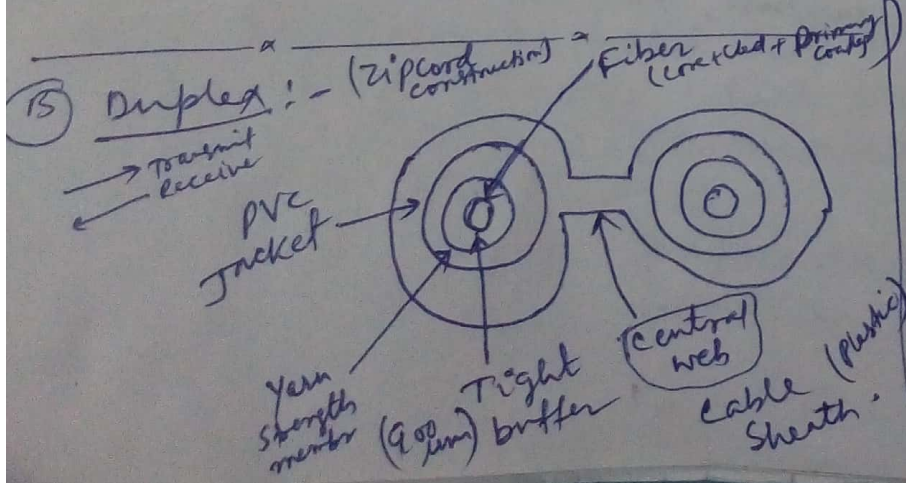 (B) Duplex :- (Zipcord
construction)
Fiber
(core + clad + primary
coated)
Transmit
Receive
PVC
Jacket
Yarn
strength
member
Tight
(900 µm) buffer
Central
web
Cable (plastic)
Sheath.